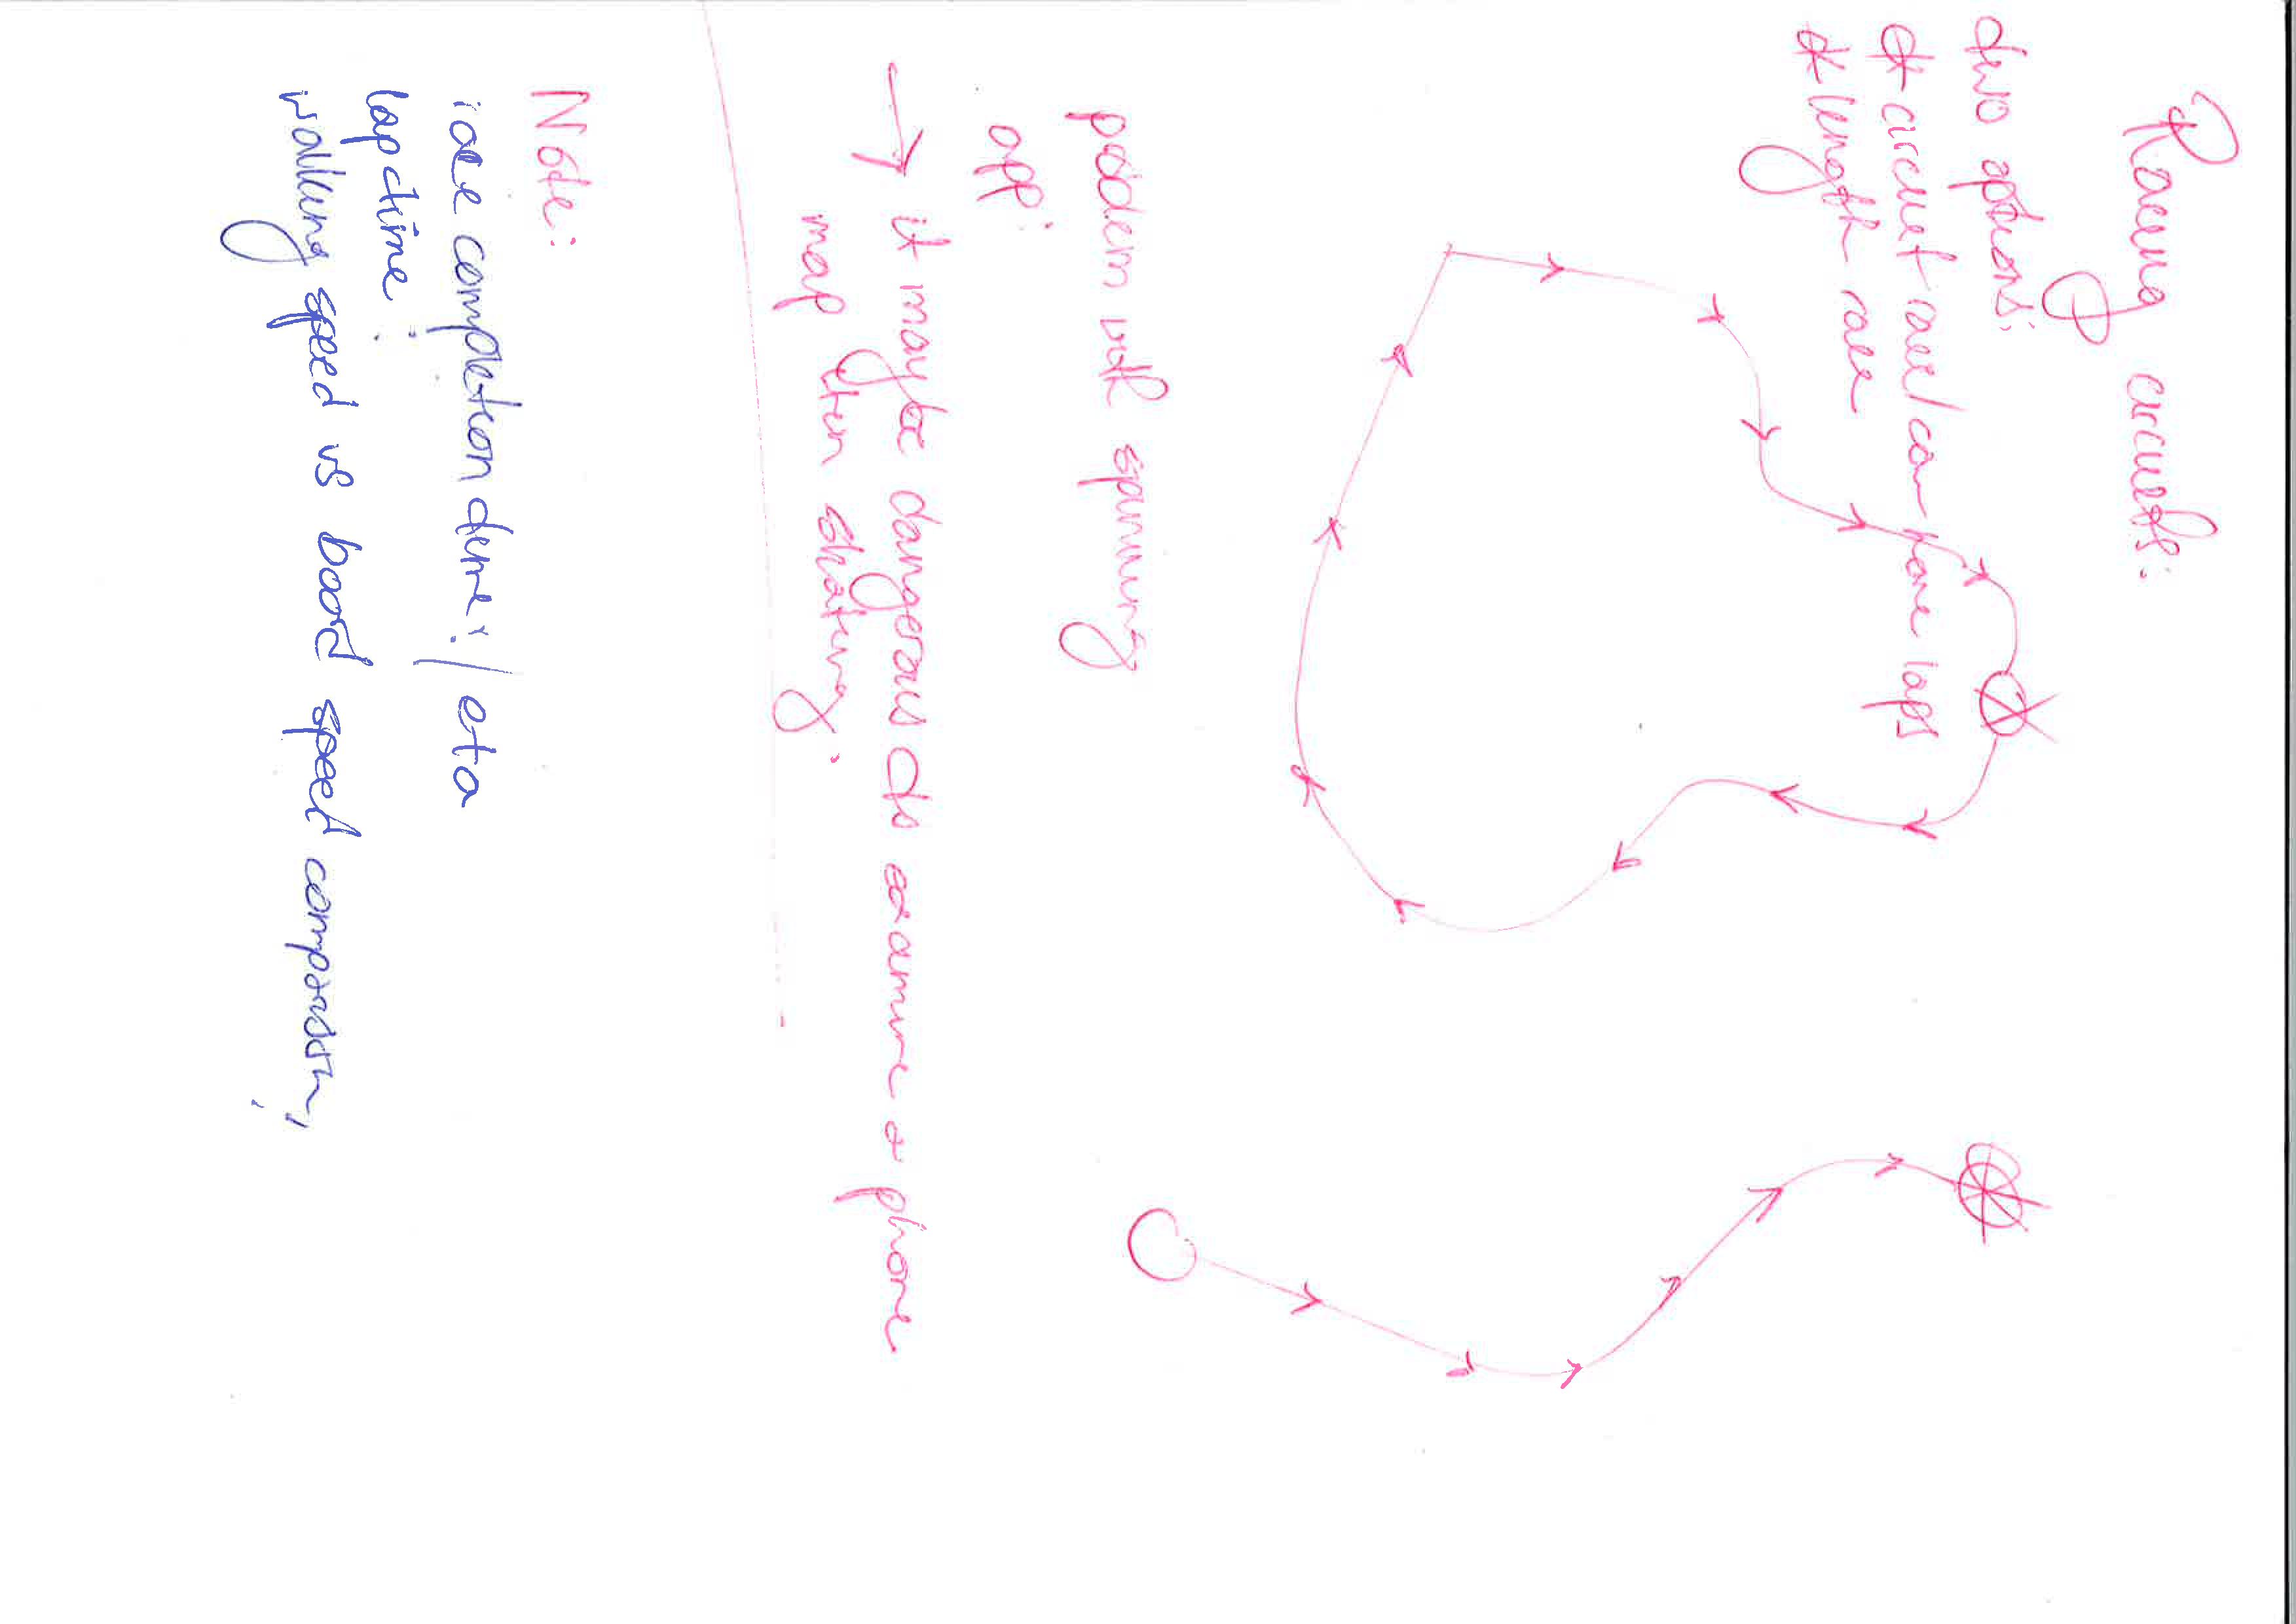 Racing circuits:
two options:
* circuit race/can have laps
* length race
problem with spinning
app:
→ it maybe dangerous to examine a phone
map then skating.
Note:
race completion time: / eta
lap time:
walking speed vs board speed comparason,